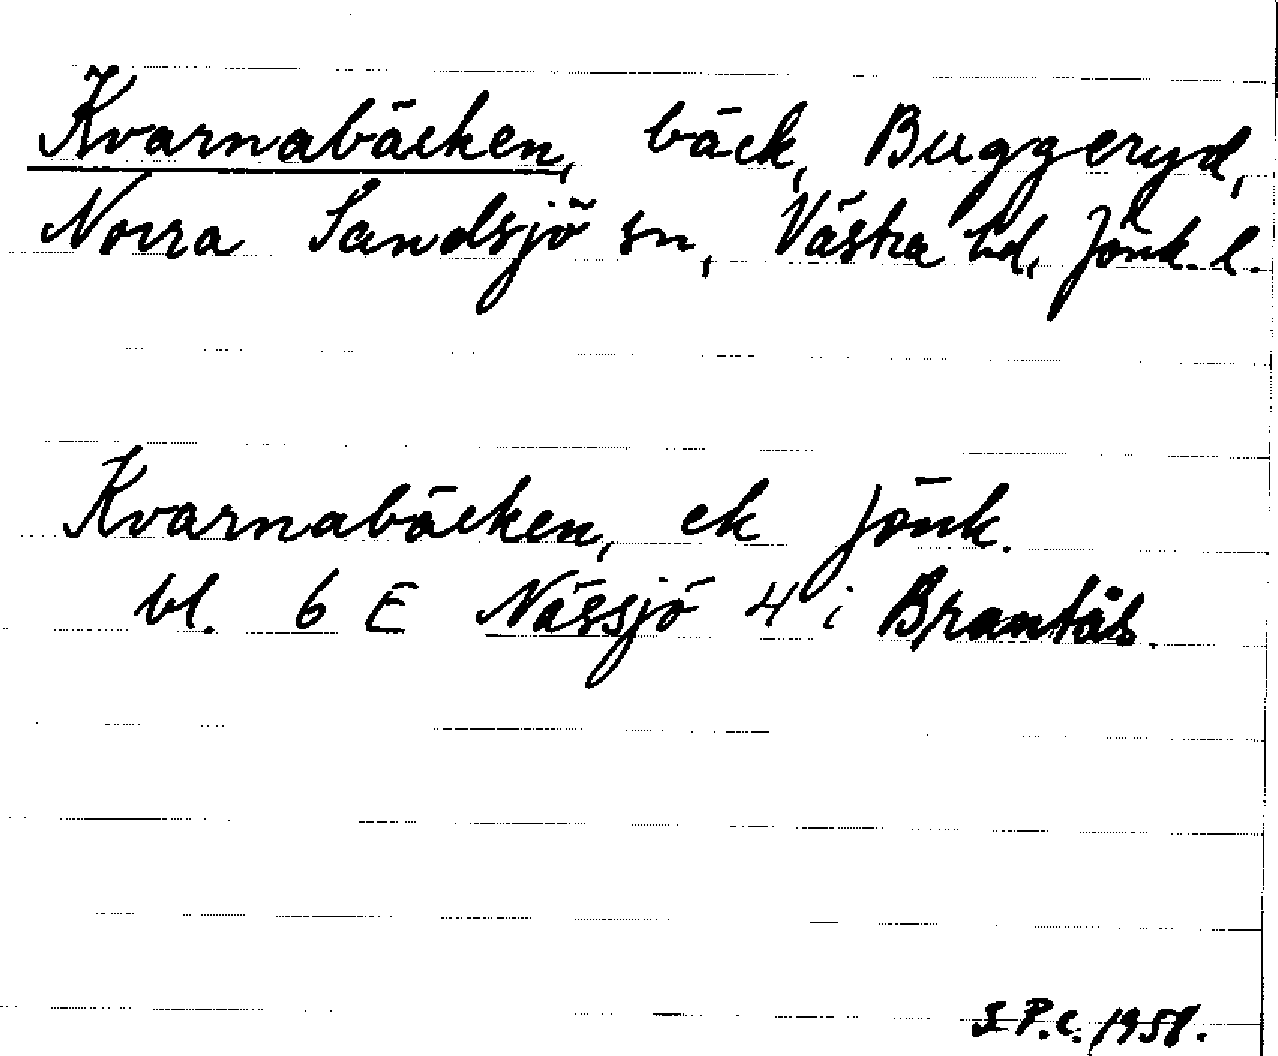 Kvarnabäcken, bäck, Buggeryd,
Norra Sandsjö sn, Västra hd, Jönk. l.
Kvarnabäcken, ek Jönk.
bl. 6 E Nässjö 4 i Brantås.
S.P.C. 1958.